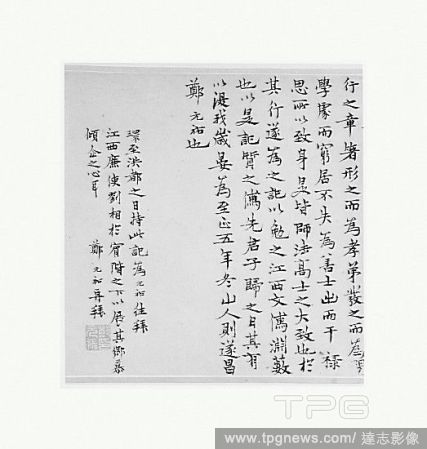 行之章著形之而為孝弟發之而為
學處而窮居不失為善士出而干祿
思所以致身是皆師法高士之大致也於
其行遂為之記以勉之江西文儒淵藪
也以是記質之儒先君子歸之日其有
以復我歲晏為至正五年冬山人則遂昌
鄭元祐也
環至洪都之日持此記為元祐往拜
江西廉使劉相於賓階之下以展其鄉慕
傾企之心耳 鄭元祐再拜
TPG
www.tpgnews.com/達志影像